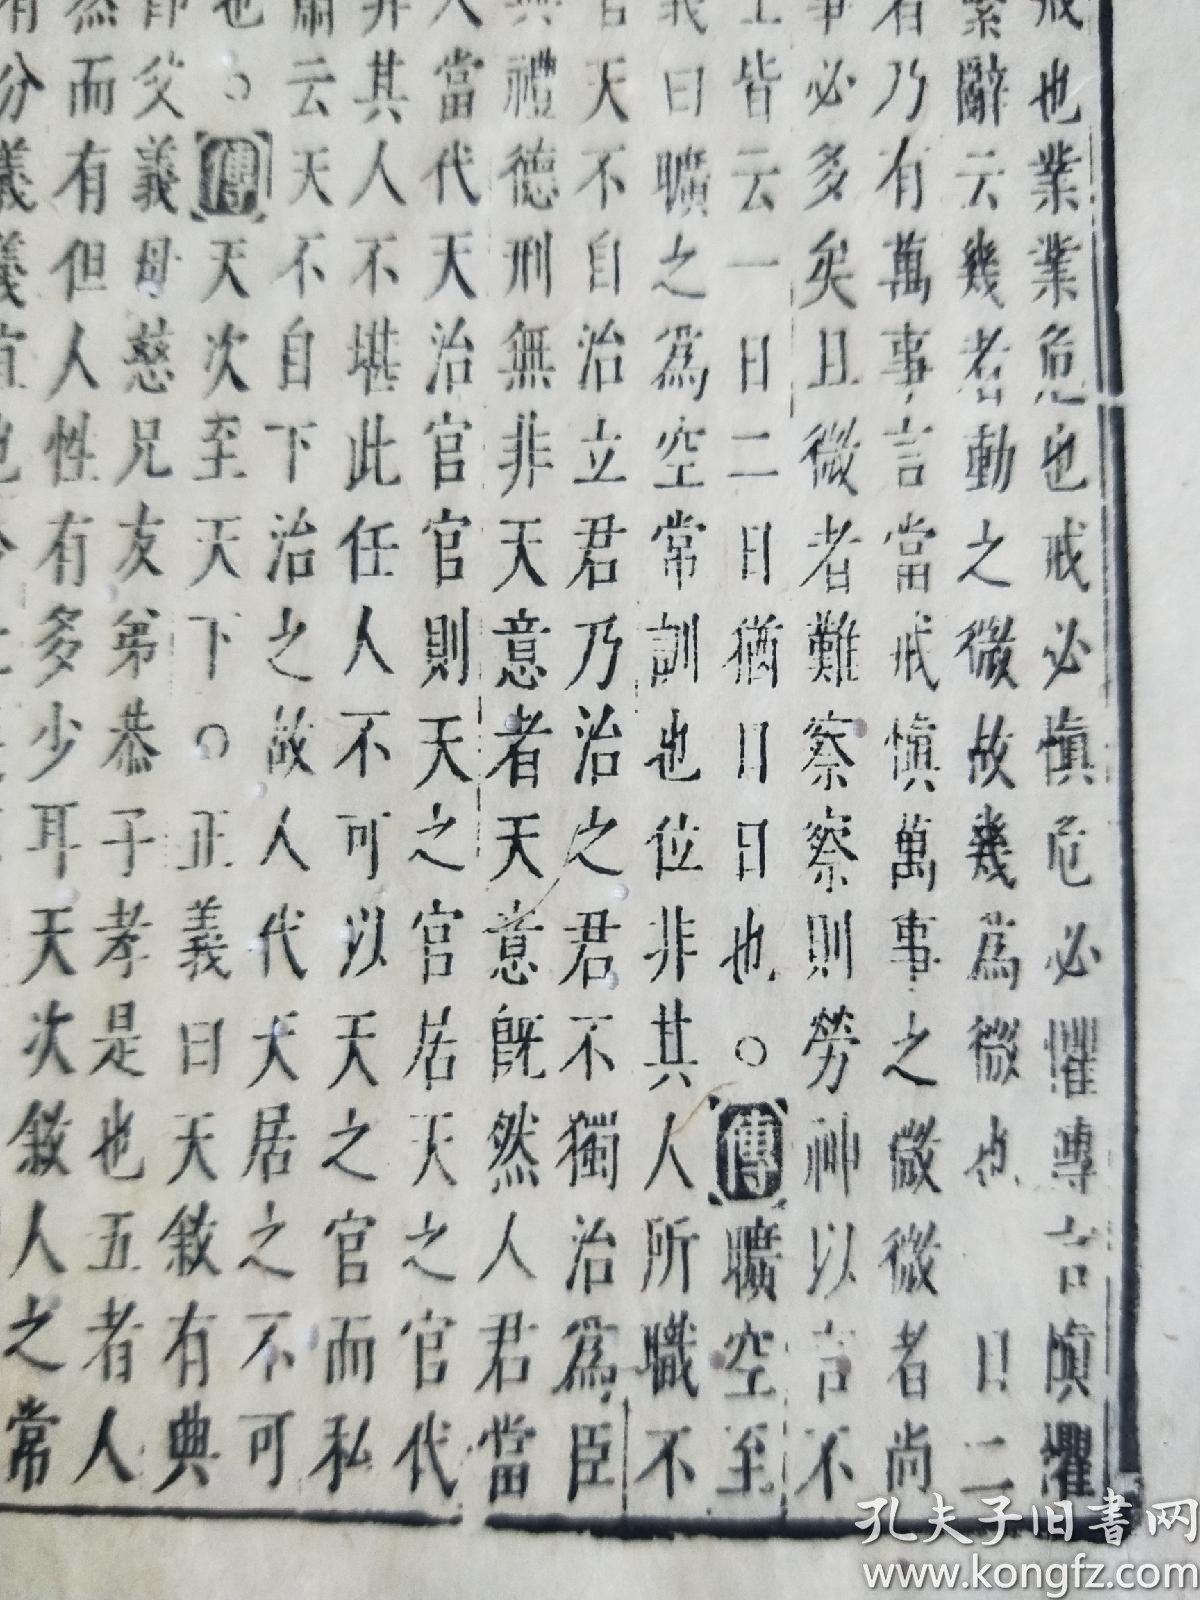 戒也業業危也戒必慎危必懼傳言慎懼
繫辭云幾者動之微故幾爲微也 日二
者乃有萬事言當戒慎萬事之微微者尚
事必多矣且微者難察察則勞神以言不
上皆云一日二日猶日日也○傳曠空至
義曰曠之爲空常訓也位非其人所職不
官天不自治立君乃治之君不獨治爲臣
典禮德刑無非天意者天意既然人君當
人當代天治官官則天之官居天之官代
非其人不堪此任人不可以天之官而私
肅云天不自下治之故人代天居之不可
也○傳天次至天下○正義曰天敘有典
卽父義母慈兄友弟恭子孝是也五者人
然而有但人性有多少耳天次敘人之常
有分義義宜也
孔夫子旧書网
www.kongfz.com